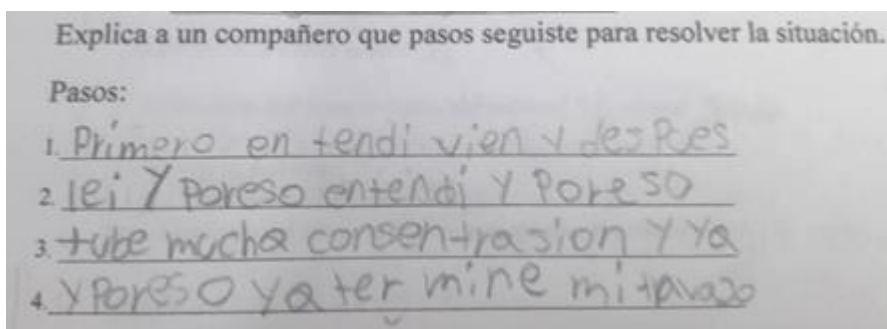 Explica a un compañero que pasos seguiste para resolver la situación.
Pasos:
1. Primero en tendi vien y des Pues
2. lei Y Poreso entendi Y Poreso
3. tube mucha consentrasion Y Ya
4. Y Poreso ya ter mine mi